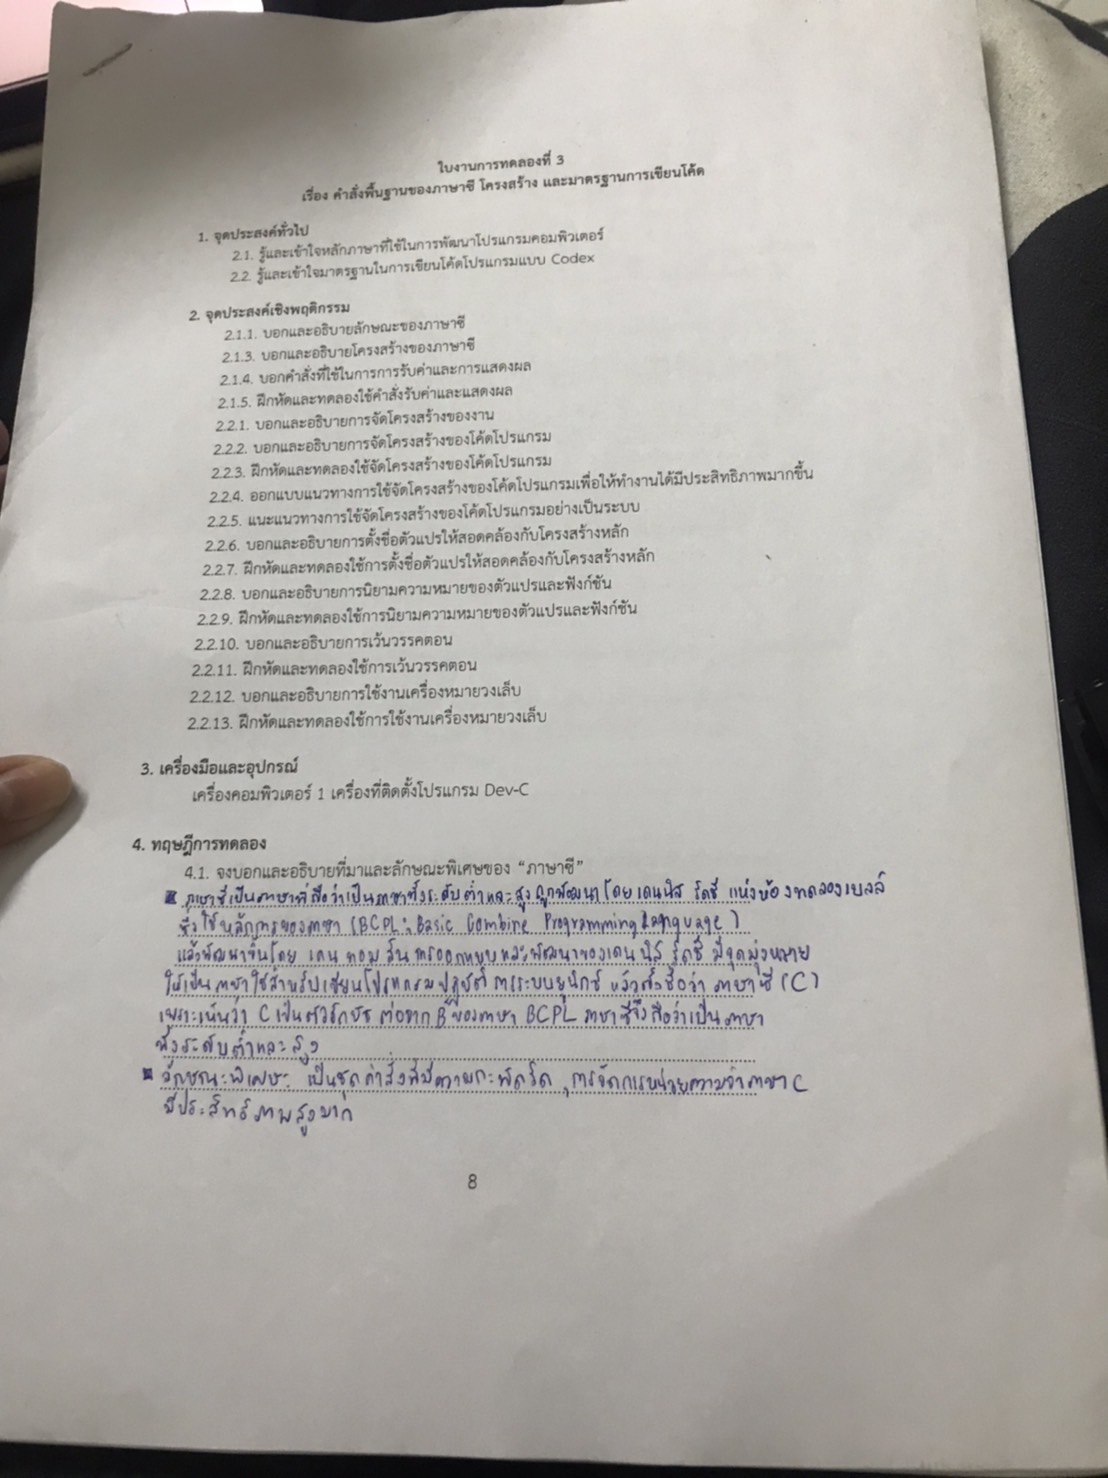 ใบงานการทดลองที่ 3
เรื่อง คำสั่งพื้นฐานของภาษาซี โครงสร้าง และมาตรฐานการเขียนโค้ด
1. จุดประสงค์ทั่วไป
2.1. รู้และเข้าใจหลักภาษาที่ใช้ในการพัฒนาโปรแกรมคอมพิวเตอร์
2.2. รู้และเข้าใจมาตรฐานในการเขียนโค้ดโปรแกรมแบบ Codex
2. จุดประสงค์เชิงพฤติกรรม
2.1.1. บอกและอธิบายลักษณะของภาษาซี
2.1.3. บอกและอธิบายโครงสร้างของภาษาซี
2.1.4. บอกคำสั่งที่ใช้ในการการรับค่าและการแสดงผล
2.1.5. ฝึกหัดและทดลองใช้คำสั่งรับค่าและแสดงผล
2.2.1. บอกและอธิบายการจัดโครงสร้างของงาน
2.2.2. บอกและอธิบายการจัดโครงสร้างของโค้ดโปรแกรม
2.2.3. ฝึกหัดและทดลองใช้จัดโครงสร้างของโค้ดโปรแกรม
2.2.4. ออกแบบแนวทางการใช้จัดโครงสร้างของโค้ดโปรแกรมเพื่อให้ทำงานได้มีประสิทธิภาพมากขึ้น
2.2.5. แนะแนวทางการใช้จัดโครงสร้างของโค้ดโปรแกรมอย่างเป็นระบบ
2.2.6. บอกและอธิบายการตั้งชื่อตัวแปรให้สอดคล้องกับโครงสร้างหลัก
2.2.7. ฝึกหัดและทดลองใช้การตั้งชื่อตัวแปรให้สอดคล้องกับโครงสร้างหลัก
2.2.8. บอกและอธิบายการนิยามความหมายของตัวแปรและฟังก์ชัน
2.2.9. ฝึกหัดและทดลองใช้การนิยามความหมายของตัวแปรและฟังก์ชัน
2.2.10. บอกและอธิบายการเว้นวรรคตอน
2.2.11. ฝึกหัดและทดลองใช้การเว้นวรรคตอน
2.2.12. บอกและอธิบายการใช้งานเครื่องหมายวงเล็บ
2.2.13. ฝึกหัดและทดลองใช้การใช้งานเครื่องหมายวงเล็บ
3. เครื่องมือและอุปกรณ์
เครื่องคอมพิวเตอร์ 1 เครื่องที่ติดตั้งโปรแกรม Dev-C
4. ทฤษฎีการทดลอง
4.1. จงบอกและอธิบายที่มาและลักษณะพิเศษของ “ภาษาซี”
ภาษาซีเป็นภาษาที่ถือว่าเป็นภาษาทั้งระดับต่ำและสูงถูกพัฒนาโดย เดนนิส ริตชี แห่งห้องทดลองเบลล์
ซึ่งใช้หลักการของภาษา (BCPL : Basic Combine Programming Language)
แล้วพัฒนาขึ้นโดย เคน ทอมสัน การออกแบบและพัฒนาของเดนนิส ริตชี มีจุดมุ่งหมาย
ให้เป็นภาษาใช้สำหรับเขียนโปรแกรมปฏิบัติการระบบยูนิกซ์ แล้วตั้งชื่อว่า ภาษาซี (C)
เพราะเห็นว่า C เป็นตัวอักษร ต่อจาก B ของภาษา BCPL ภาษาซีจึงถือว่าเป็นภาษา
ทั้งระดับต่ำและสูง
ลักษณะพิเศษ เป็นชุดคำสั่งที่มีความกะทัดรัด , การจัดการหน่วยความจำภาษา C
มีประสิทธิภาพสูงมาก
8